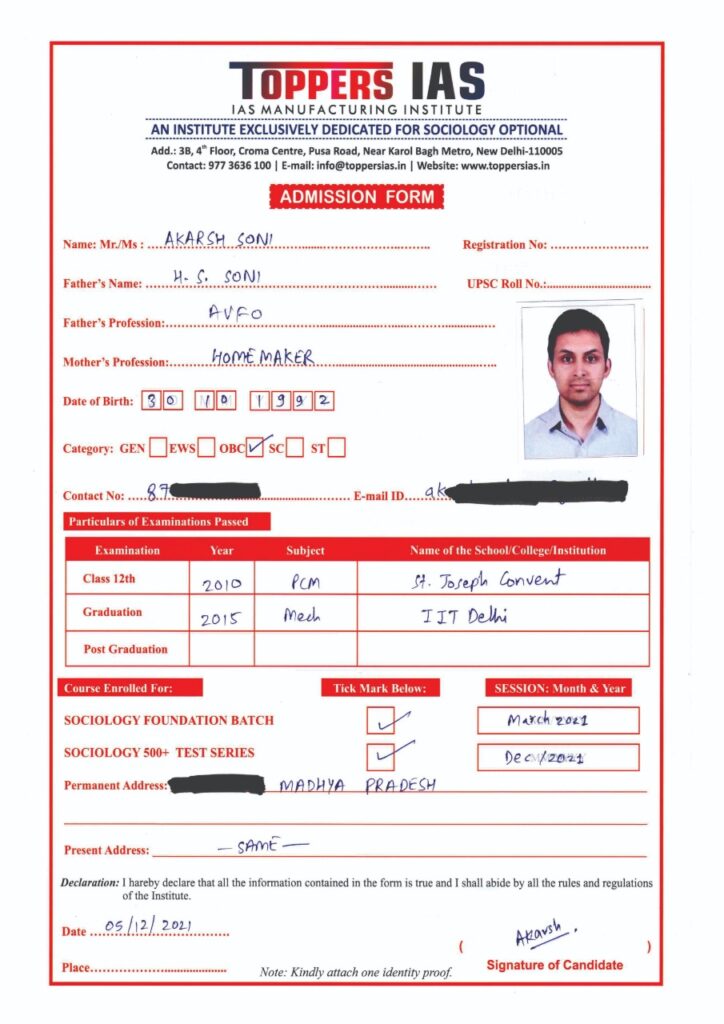 TOPPERS IAS
IAS MANUFACTURING INSTITUTE
AN INSTITUTE EXCLUSIVELY DEDICATED FOR SOCIOLOGY OPTIONAL
Add.: 3B, 4th Floor, Croma Centre, Pusa Road, Near Karol Bagh Metro, New Delhi-110005
Contact: 977 3636 100 | E-mail: info@toppersias.in | Website: www.toppersias.in
ADMISSION FORM
Name: Mr./Ms : AKARSH SONI Registration No:
Father's Name: H. S. SONI UPSC Roll No.:
Father's Profession: AVFO
Mother's Profession: HOMEMAKER
Date of Birth: 30 10 1992
Category: GEN EWS OBC ✓ SC ST
Contact No: 87 E-mail ID ak
Particulars of Examinations Passed
Examination Year Subject Name of the School/College/Institution
Class 12th 2010 PCM St. Joseph Convent
Graduation 2015 Mech IIT Delhi
Post Graduation
Course Enrolled For: Tick Mark Below: SESSION: Month & Year
SOCIOLOGY FOUNDATION BATCH ✓ March 2021
SOCIOLOGY 500+ TEST SERIES ✓ Dec/2021
Permanent Address: MADHYA PRADESH
Present Address: — SAME —
Declaration: I hereby declare that all the information contained in the form is true and I shall abide by all the rules and regulations
of the Institute.
Date 05/12/2021
( Akarsh. )
Place Note: Kindly attach one identity proof. Signature of Candidate